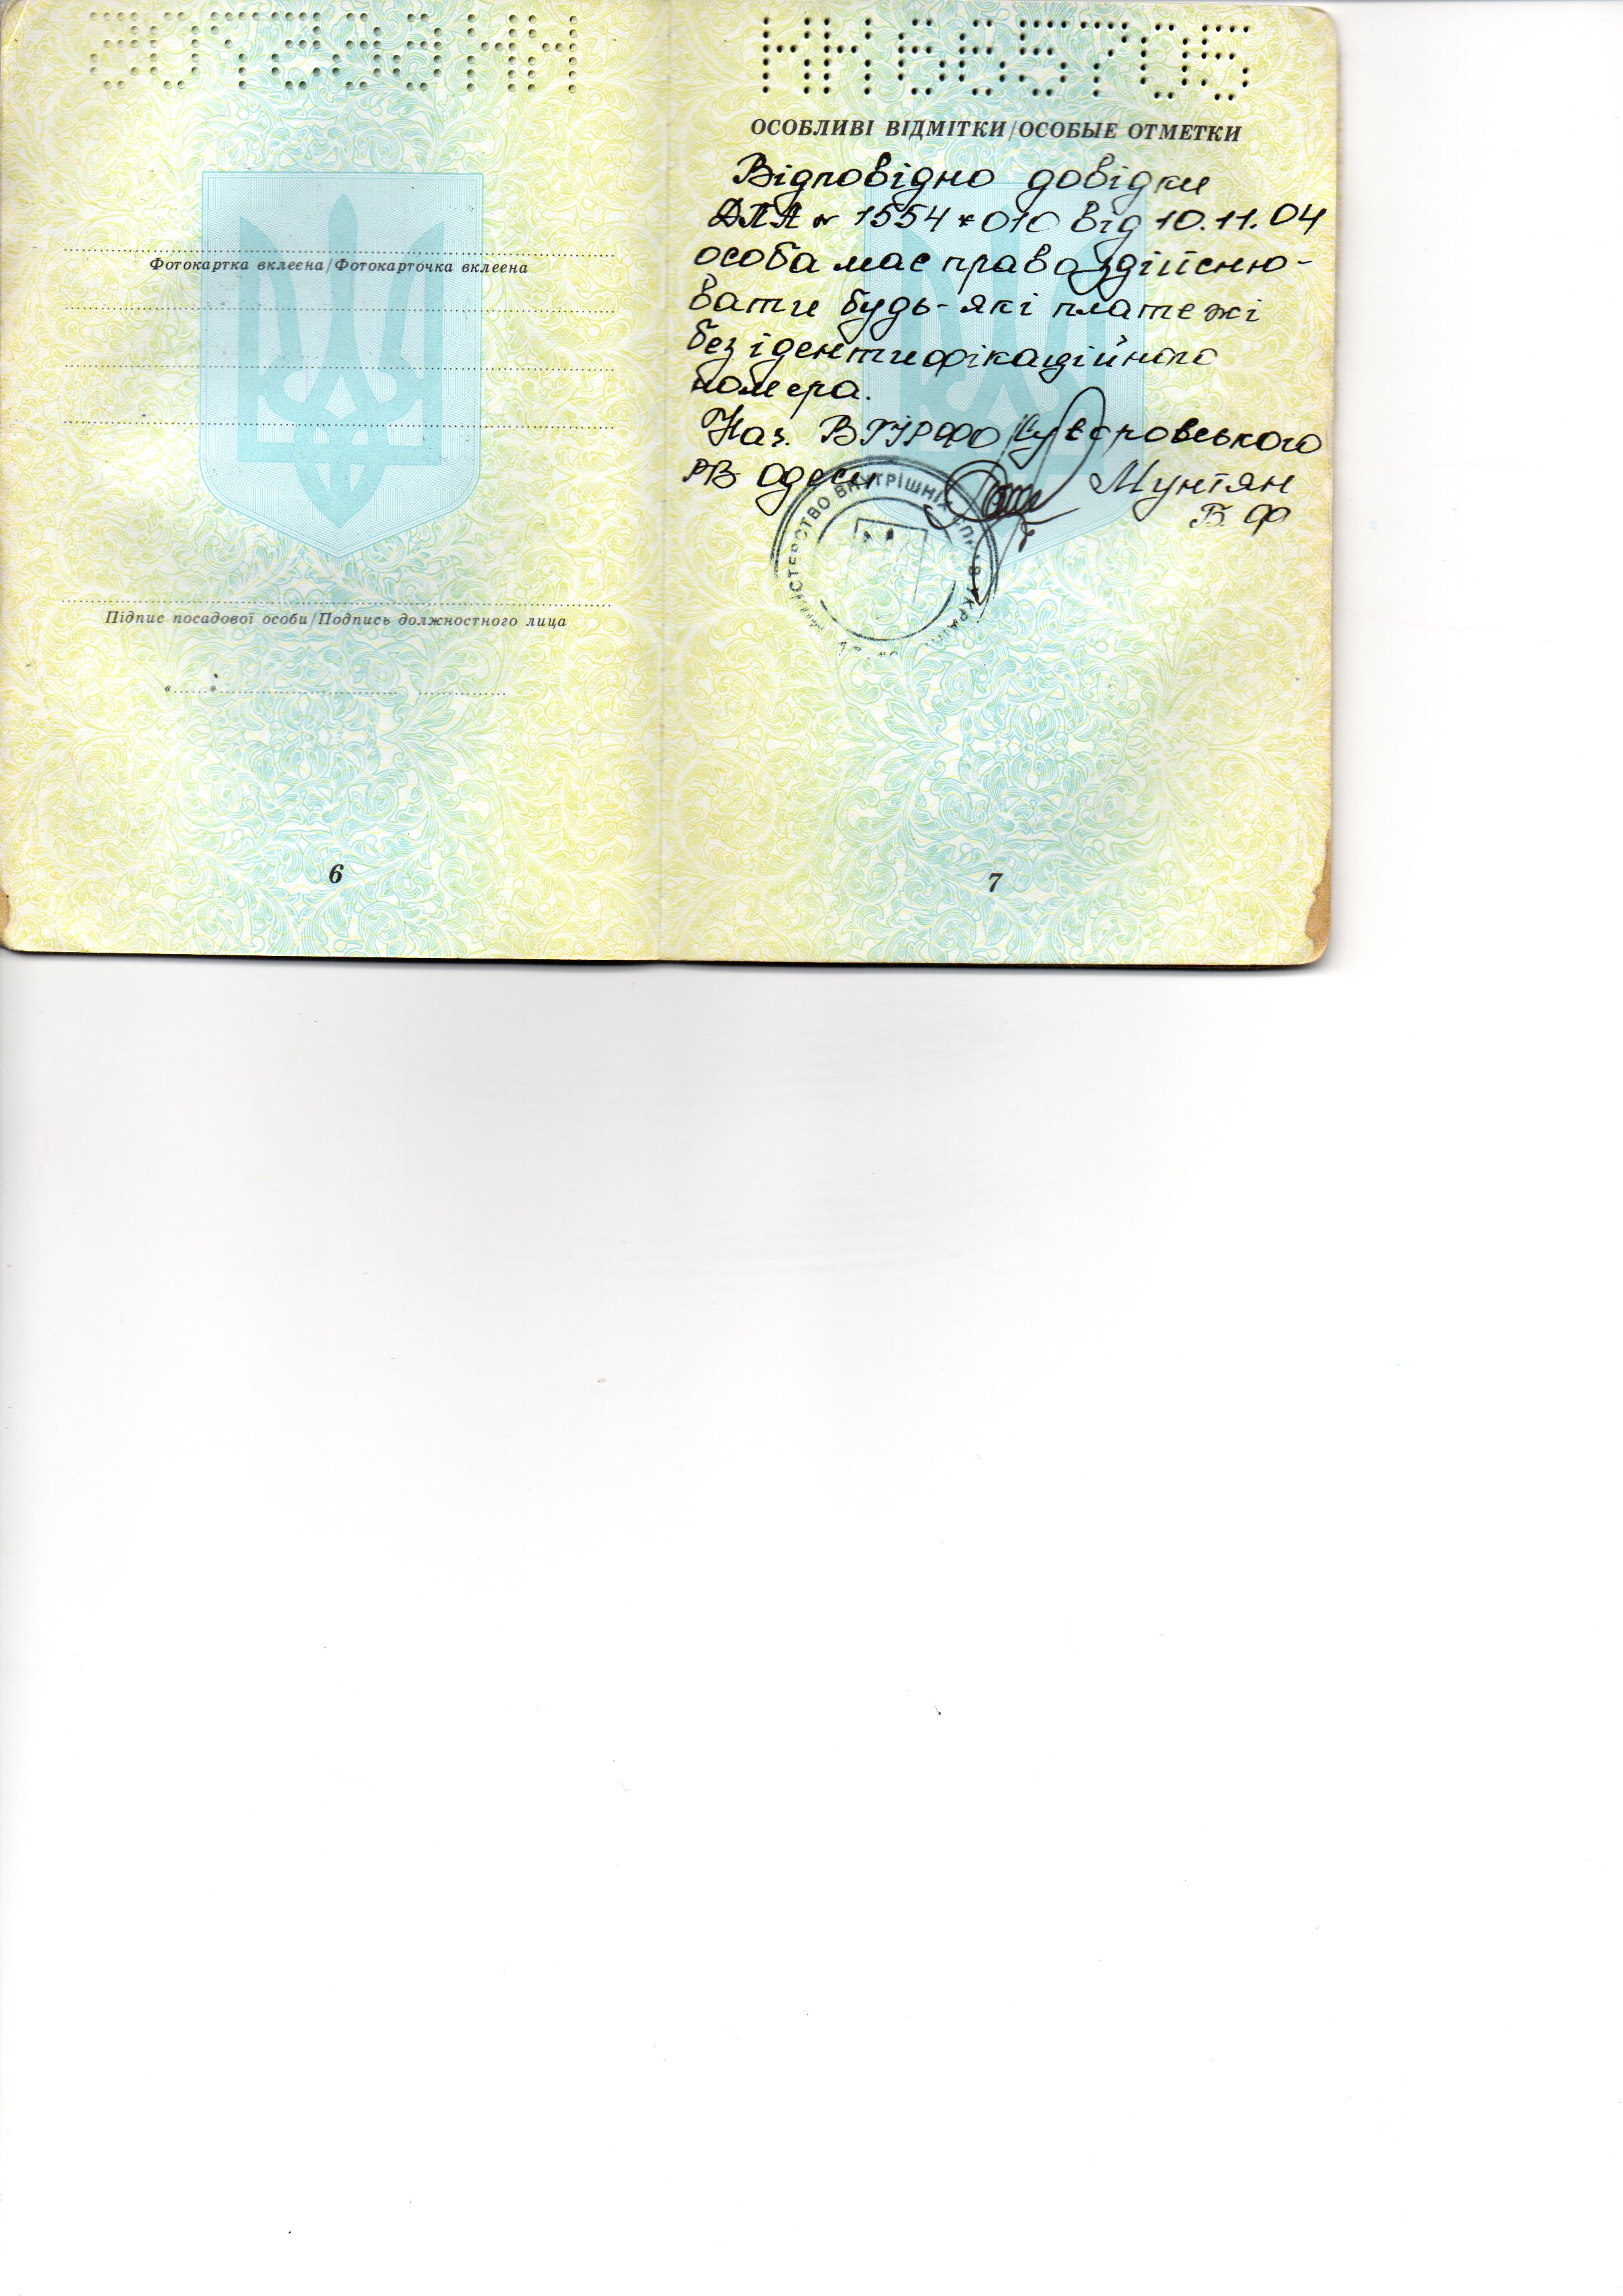 Фотокартка вклеєна/Фотокарточка вклеена
Підпис посадової особи/Подпись должностного лица
«......»
6
НН665705
ОСОБЛИВІ ВІДМІТКИ/ОСОБЫЕ ОТМЕТКИ
Відповідно довідки
ДПА № 1554*010 від 10.11.04
особа має право здійсню-
вати будь-які платежі
без ідентифікаційного
номера.
Нач. ВГІРФО
РВ Одеси Мунтян
В Ф
МІНІСТЕРСТВО ВНУТРІШНІХ СПРАВ УКРАЇНИ
7